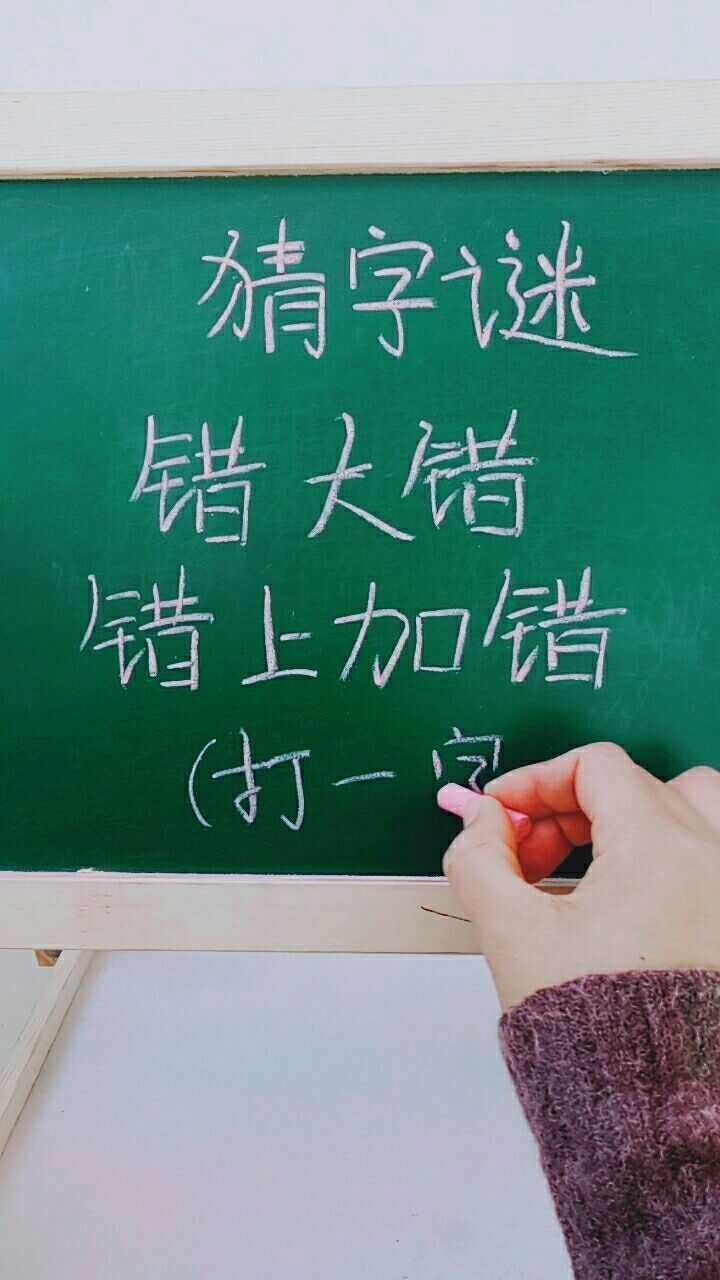 猜字谜
错大错
错上加错
(打一字